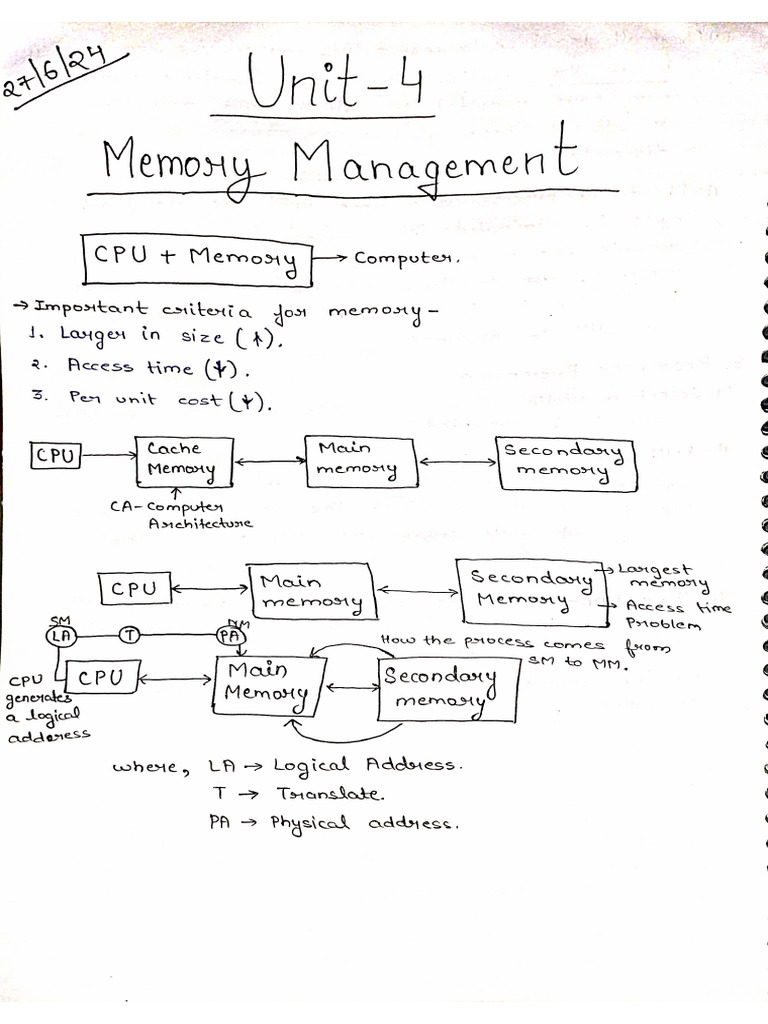 27/6/24
Unit-4
Memory Management
CPU + Memory → Computer.
→ Important criteria for memory-
1. Larger in size (↑).
2. Access time (↓).
3. Per unit cost (↓).
CPU
Cache
Memory
Main
memory
Secondary
memory
CA-Computer
Architecture
CPU
Main
memory
Secondary
Memory
→ Largest
memory
→ Access time
Problem
SM
LA
T
MM
PA
How the process comes from
SM to MM.
CPU
generates
a logical
adderess
CPU
Main
Memory
Secondary
memory
where, LA → Logical Address.
T → Translate.
PA → Physical address.